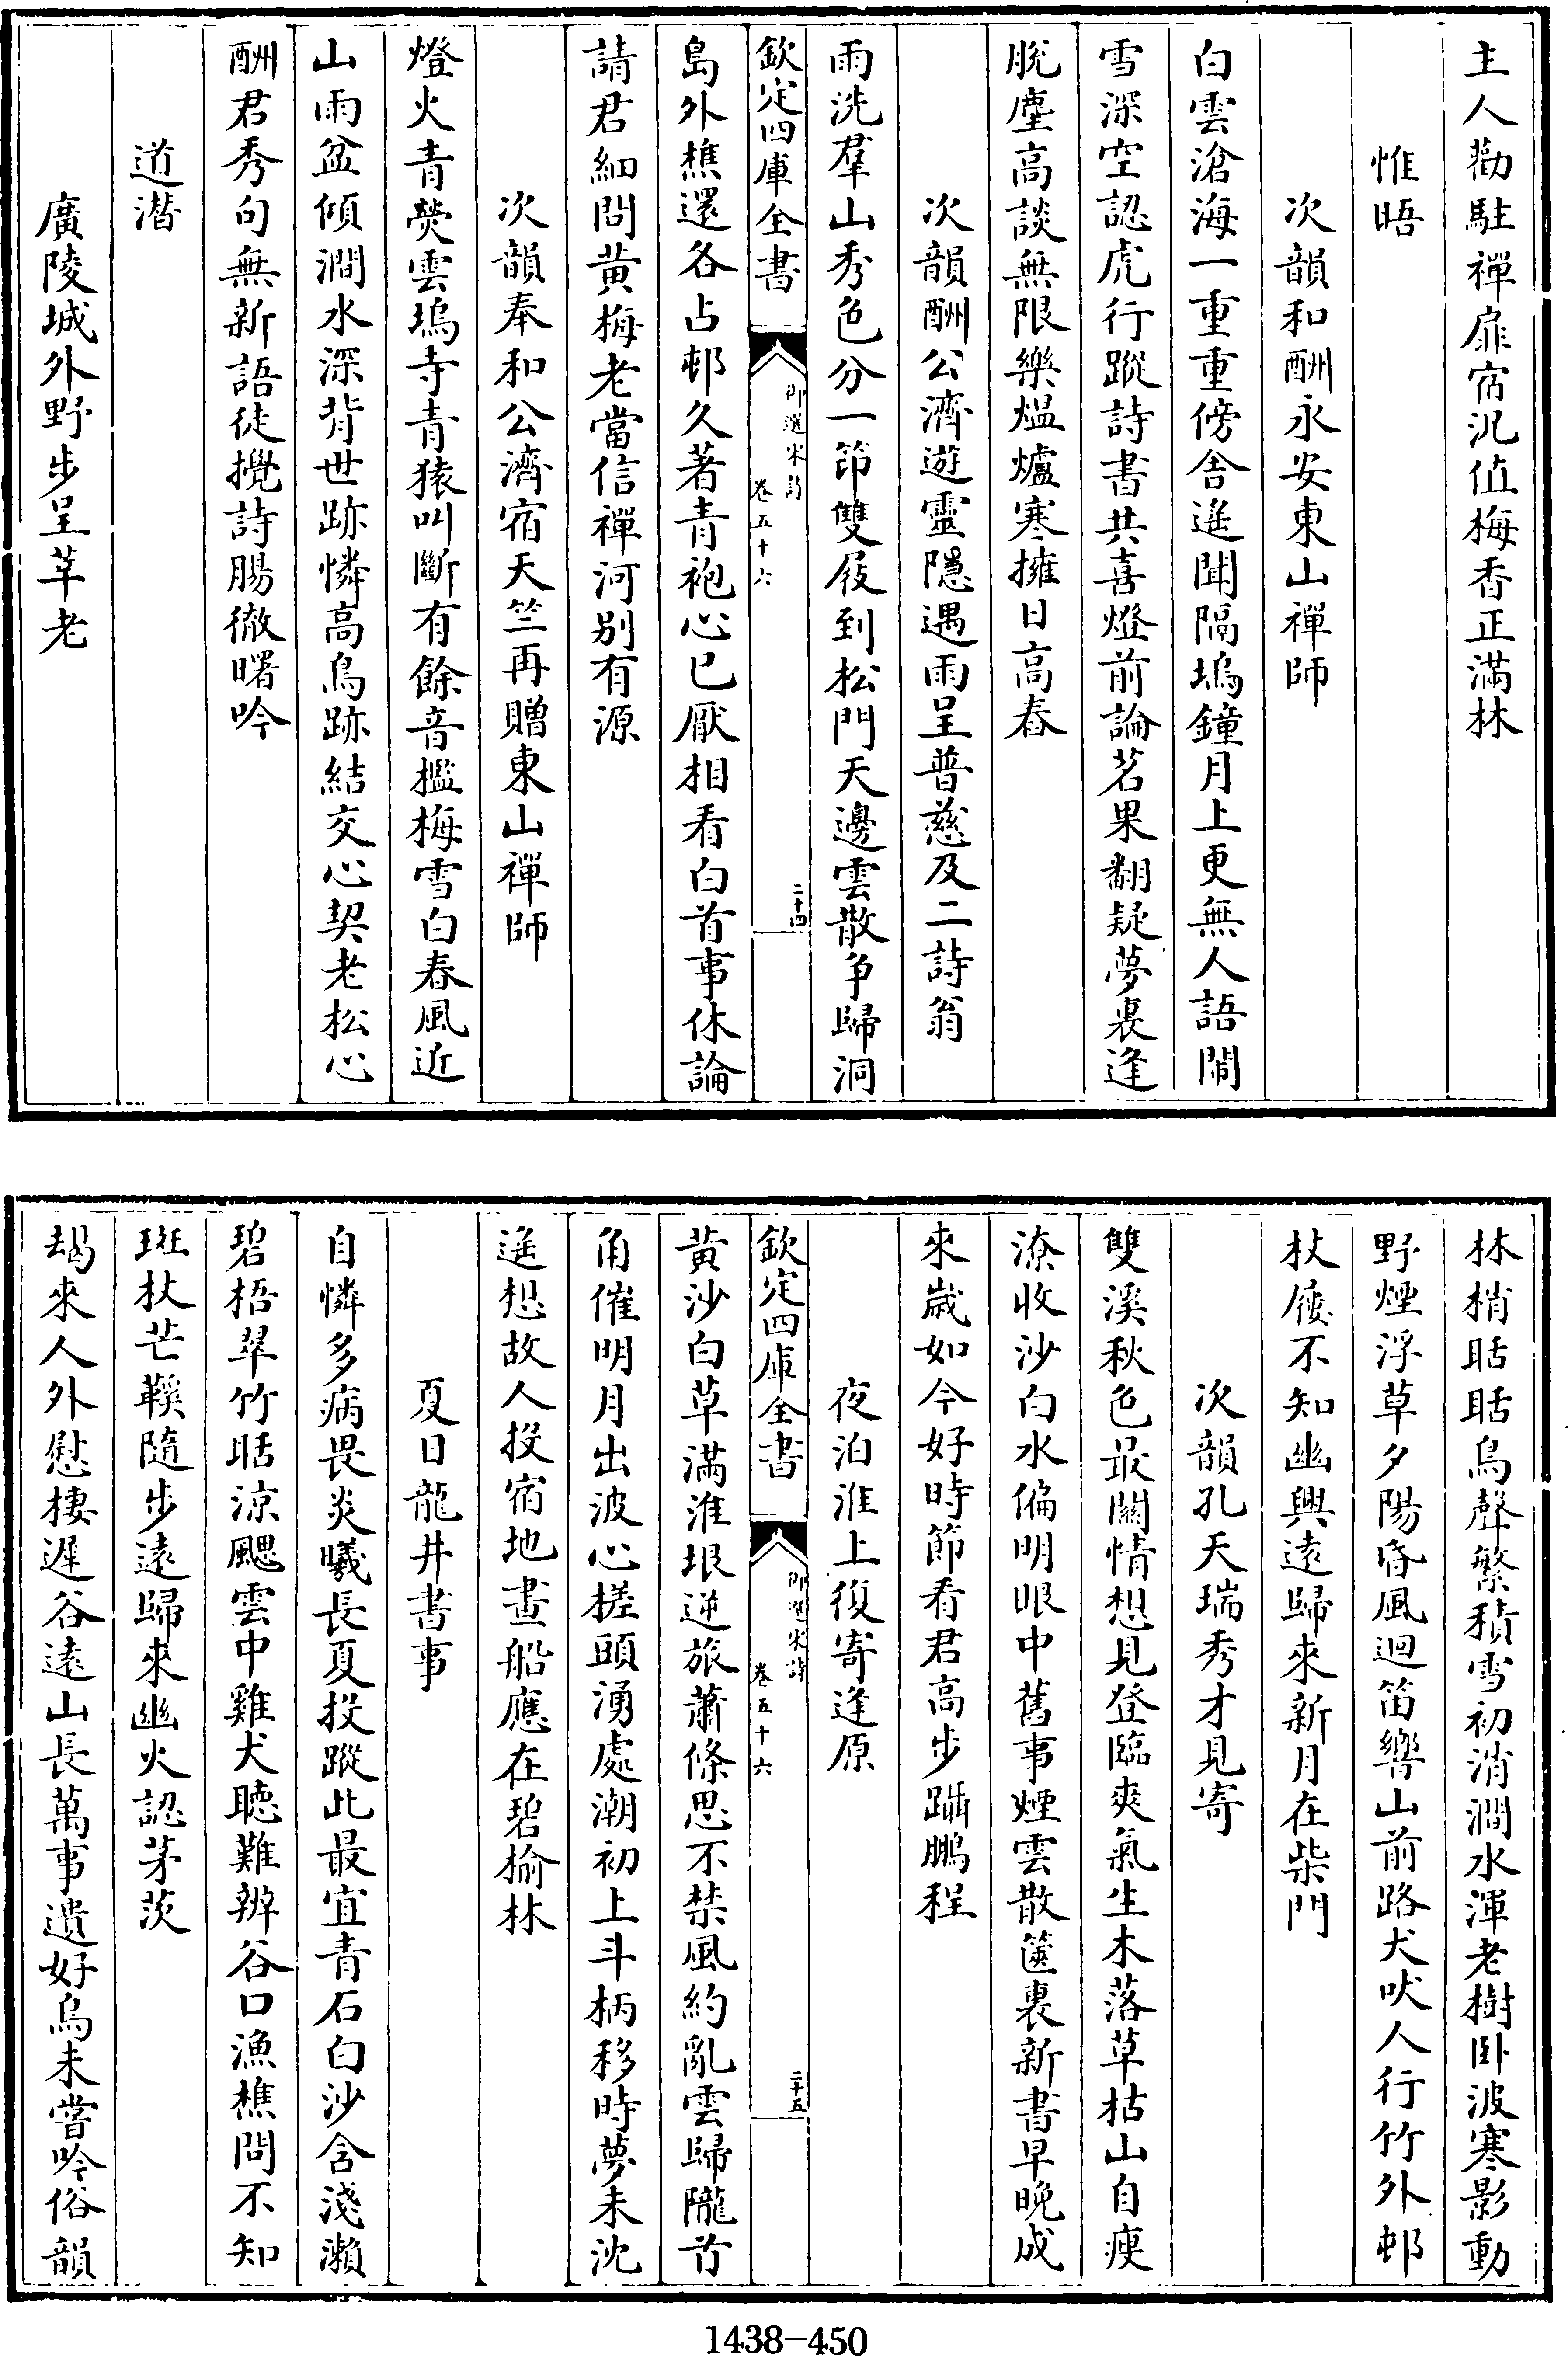 主人勸駐禪扉宿況值梅香正滿林
惟晤
次韻和酬永安東山禪師
白雲滄海一重重傍舍遥聞隔塢鐘月上更無人語閙
雪深空認虎行蹤詩書共喜燈前論茗果翻疑夢裏逢
脫塵高談無限樂煴爐寒擁日高舂
次韻酬公濟遊靈隱遇雨呈普慈及二詩翁
雨洗羣山秀色分一筇雙屐到松門天邊雲散争歸洞
欽定四庫全書
御選宋詩
卷五十六
二十四
島外樵還各占邨久著青袍心已厭相看白首事休論
請君細問黄梅老當信禪河别有源
次韻奉和公濟宿天竺再贈東山禪師
燈火青熒雲塢寺青猿叫斷有餘音檻梅雪白春風近
山雨盆傾澗水深背世跡憐高鳥跡結交心契老松心
酬君秀句無新語徒攪詩腸徹曙吟
道潛
廣陵城外野步呈莘老
林梢聒聒鳥聲繁積雪初消澗水渾老樹卧波寒影動
野煙浮草夕陽昏風迴笛響山前路犬吠人行竹外邨
杖屨不知幽興遠歸來新月在柴門
次韻孔天瑞秀才見寄
雙溪秋色最關情想見登臨爽氣生木落草枯山自瘦
潦收沙白水偏明眼中舊事煙雲散篋裏新書早晚成
來歲如今好時節看君高步躡鵬程
夜泊淮上復寄逢原
欽定四庫全書
御選宋詩
卷五十六
二十五
黄沙白草滿淮垠逆旅蕭條思不禁風約亂雲歸隴首
角催明月出波心槎頭湧處潮初上斗柄移時夢未沈
遥想故人投宿地畫船應在碧榆林
夏日龍井書事
自憐多病畏炎曦長夏投蹤此最宜青石白沙含淺瀨
碧梧翠竹聒涼颸雲中雞犬聽難辨谷口漁樵問不知
斑杖芒鞵隨步遠歸來幽火認茅茨
朅來人外慰棲遲谷遠山長萬事遺好鳥未嘗吟俗韻
1438-450